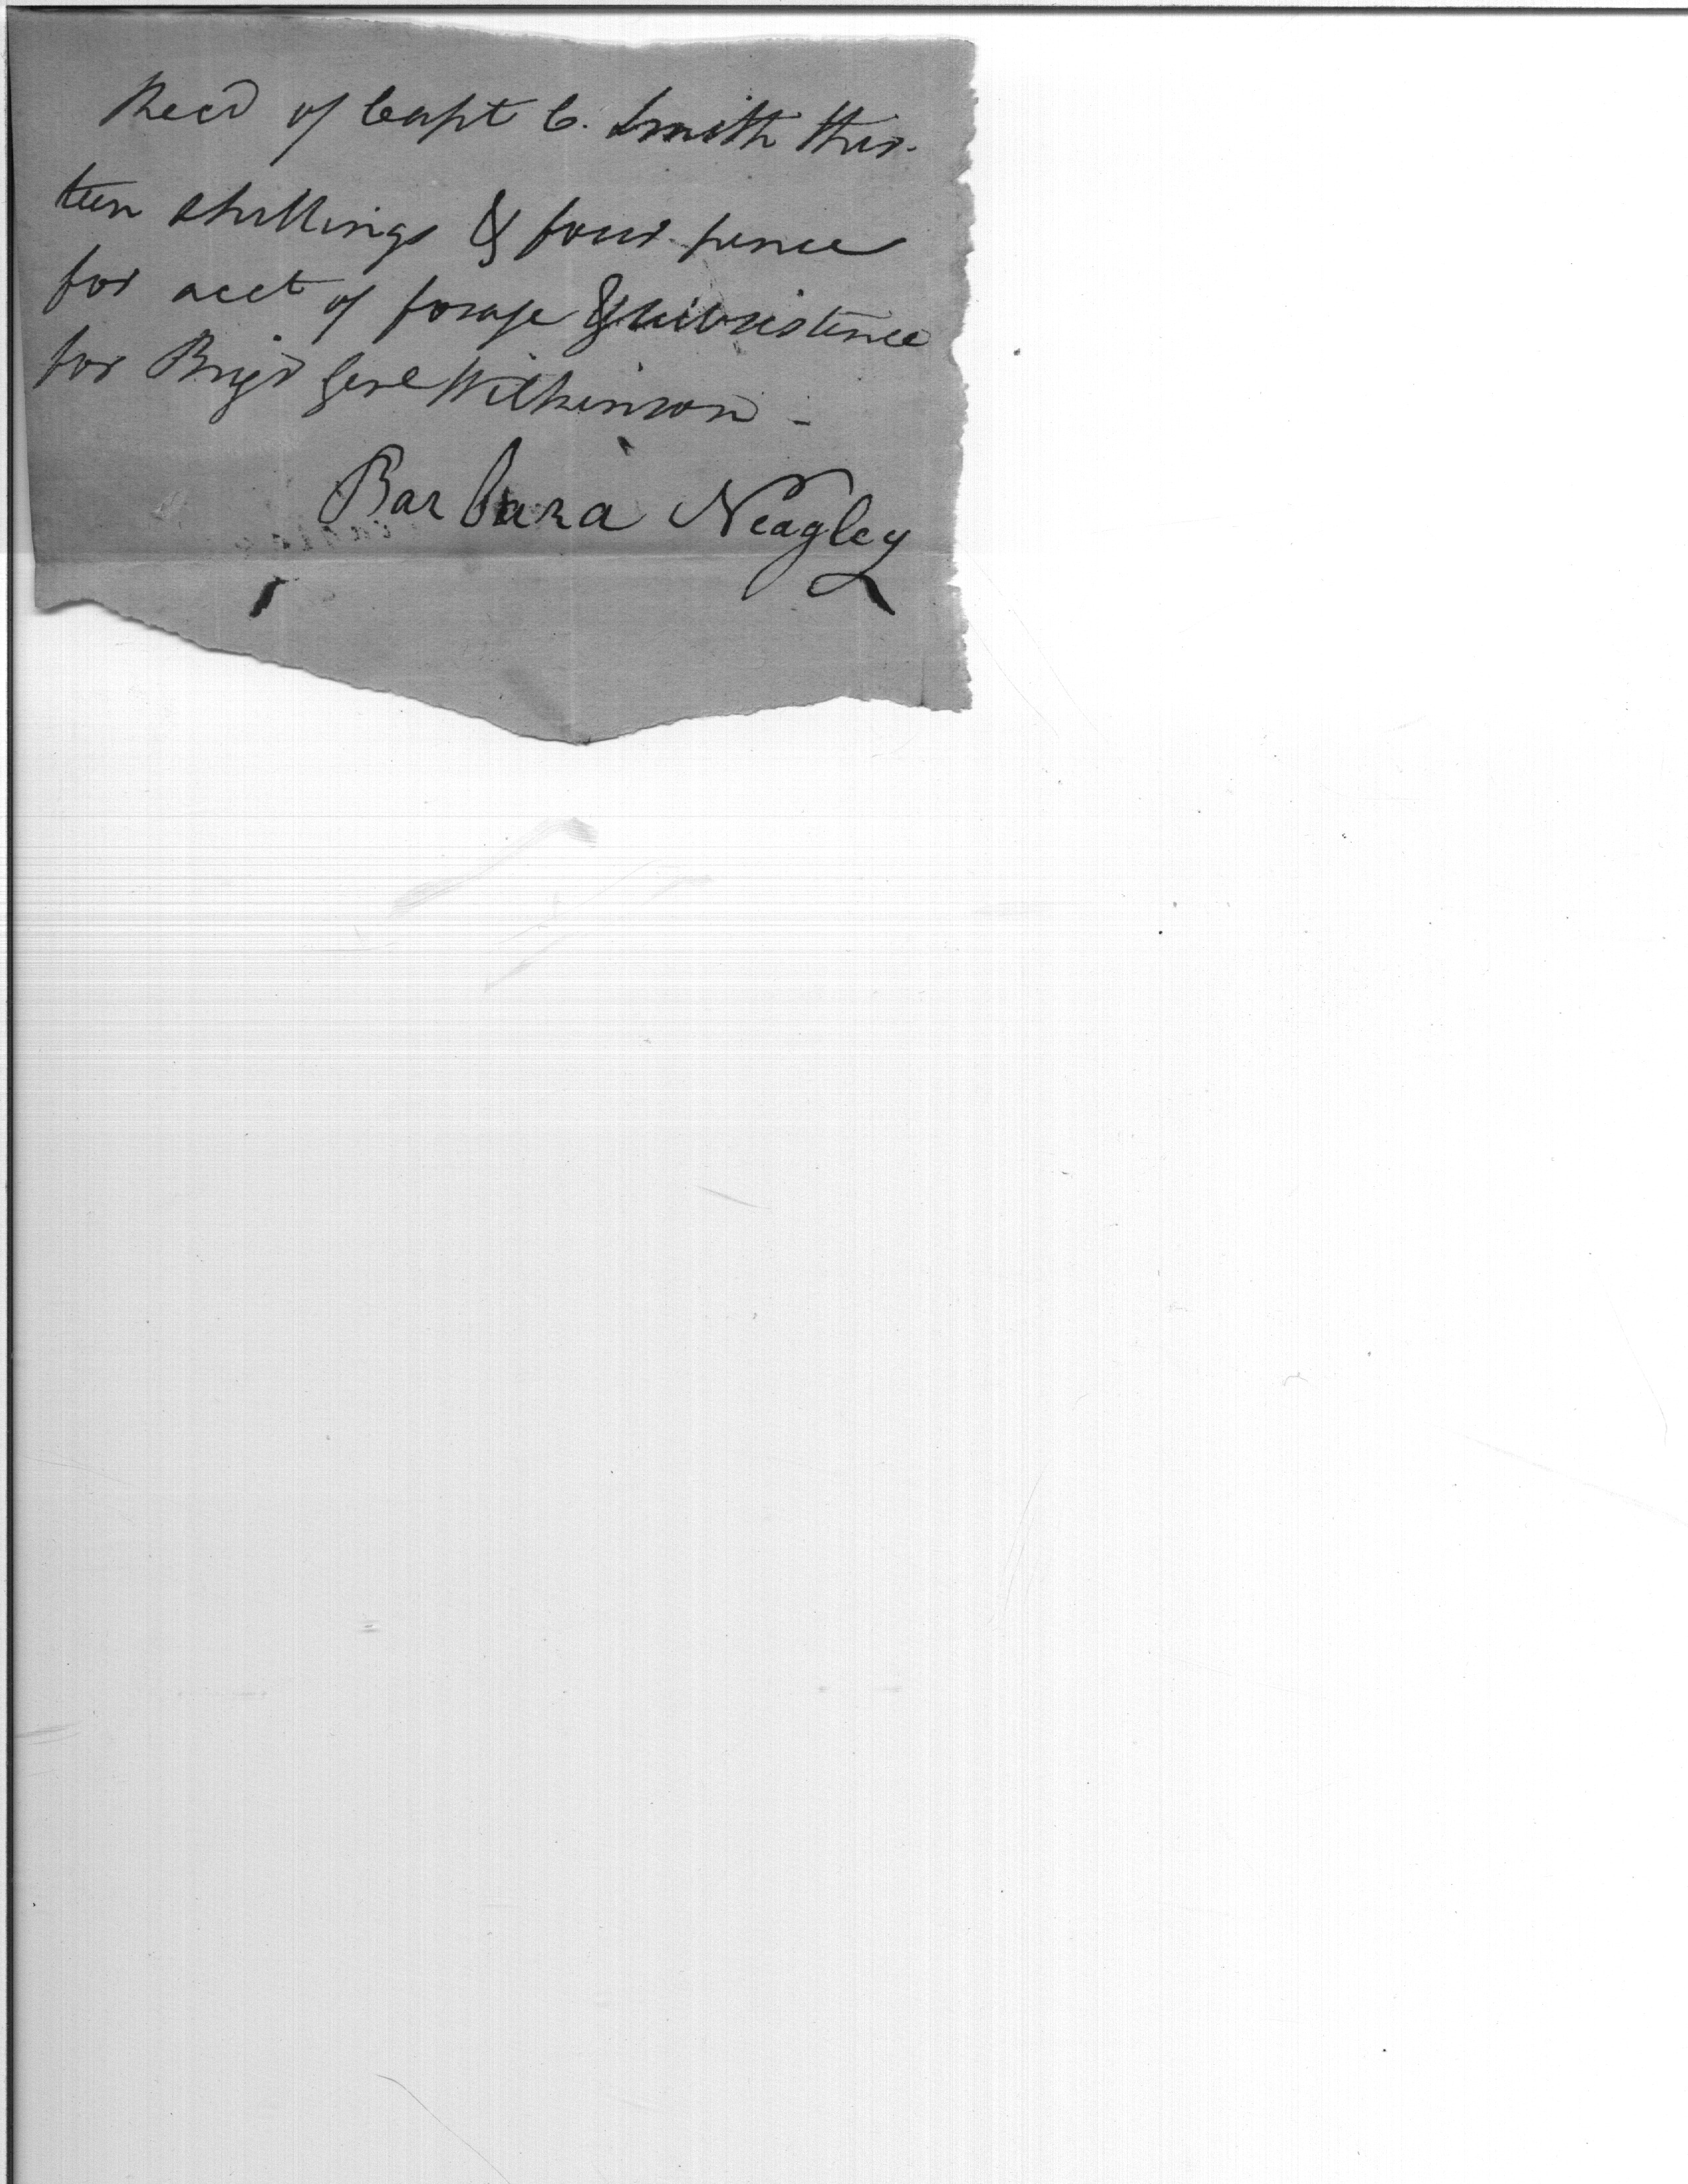 Recd of Capt C. Smith thir-
teen shillings & four pence
for acct of forage & subsistence
for Brigd Genl Wilkinson -
Barbara Neagley